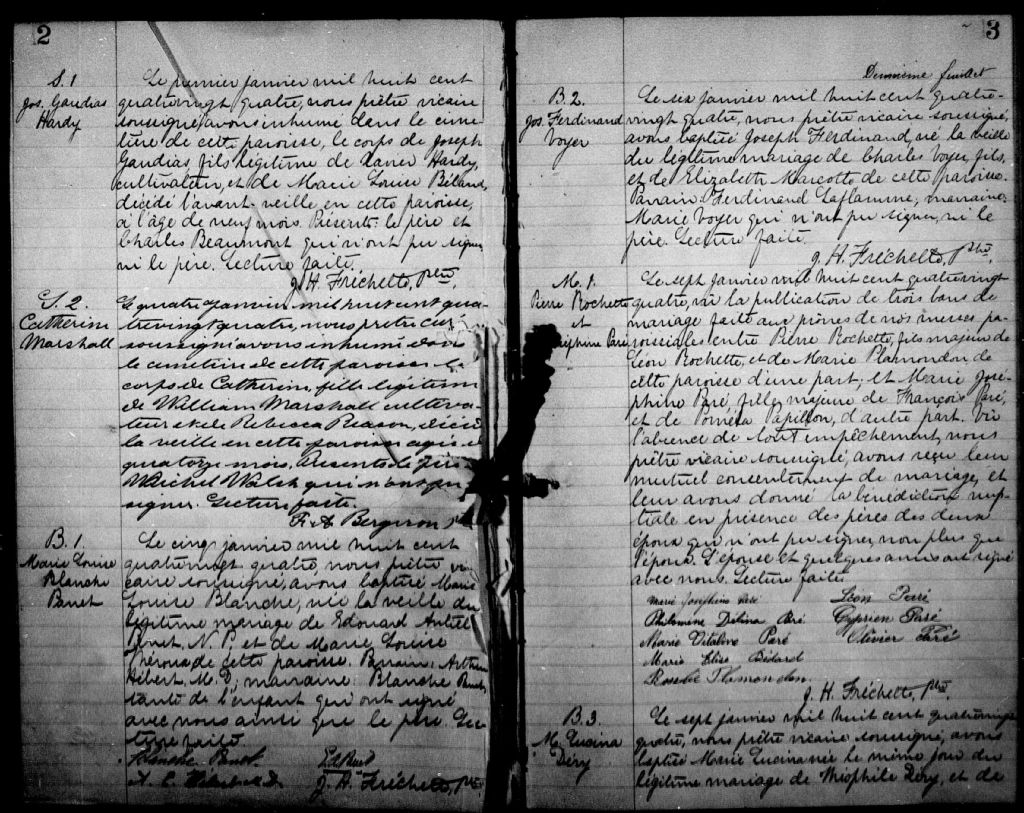 2
S. 1
Jos. Gaudias
Hardy
Le premier janvier mil huit cent
quatrevingt quatre, nous prêtre vicaire
soussigné, avons inhumé dans le cime-
tière de cette paroisse, le corps de Joseph
Gaudias, fils légitime de Xavier Hardy,
cultivateur, et de Marie Louise Béland,
décédé l'avant-veille en cette paroisse,
à l'âge de neuf mois. Présents: le père et
Charles Beaumont qui n'ont pu signer
ni le père. Lecture faite.
J. H. Fréchette, Ptre.
S. 2.
Catherin
Marshall
Le quatre janvier mil huit cent qua-
trevingt quatre, nous prêtre curé
soussigné avons inhumé dans
le cimetière de cette paroisse le
corps de Catherin, fille légitime
de William Marshall cultiva-
teur et de Rebecca Reason, décédé
la veille en cette paroisse agée de
quatorze mois. Présents le père
Michel Walsh qui n'ont pu
signer. Lecture faite.
F. A. Bergeron
B. 1.
Marie Louise
Blanche
Panet
Le cinq janvier mil huit cent
quatrevingt quatre, nous prêtre vi-
caire soussigné, avons baptisé Marie
Louise Blanche, née la veille du
légitime mariage de Edouard Antill
Panet, N. P. et de Marie Louise
de cette paroisse. Parrain: Arthur
Hébert, M. D; marraine: Blanche Panet
tante de l'enfant qui ont signé
avec nous ainsi que le père. Lec-
ture faite.
Blanche Panet
J. H. Fréchette, Ptre
3
Deuxième feuillet
B. 2.
Jos. Ferdinand
Voyer
Le six janvier mil huit cent quatre-
vingt quatre, nous prêtre vicaire soussigné,
avons baptisé Joseph Ferdinand, né la veille
du légitime mariage de Charles Voyer, fils,
et de Elizabeth Marcotte de cette paroisse.
Parrain: Ferdinand Laflamme; marraine:
Marie Voyer qui n'ont pu signer, ni le
père. Lecture faite.
J. H. Fréchette, Ptre.
M. 1.
Pierre Rochette
et
Joséphine Paré
Le sept janvier mil huit cent quatrevingt
quatre, vu la publication de trois bans de
mariage faite aux prônes de nos messes pa-
roissiales entre Pierre Rochette, fils majeur de
Léon Rochette, et de Marie Plamondon de
cette paroisse d'une part; et Marie José-
phine Paré, fille majeure de François Paré,
et de Papillon, d'autre part. Vu
l'absence de tout empêchement, nous
prêtre vicaire soussigné, avons reçu leur
mutuel consentement de mariage, et
leur avons donné la bénédiction nup-
tiale en présence des pères des deux
époux qui n'ont pu signer, non plus que
l'époux. L'épouse et quelques amis ont signé
avec nous. Lecture faite
Marie Joséphine Paré
Léon Paré
Philomine Délina Paré
Cyprien Paré
Marie Vitaline Paré
Olivier Paré
Marie Elise Bédard
Rosalie Plamondon.
J. H. Fréchette, Ptre.
B. 3.
M. Lucina
Dery
Le sept janvier mil huit cent quatrevingt
quatre, nous prêtre vicaire soussigné, avons
baptisé Marie Lucina née le même jour du
légitime mariage de Théophile Dery, et de